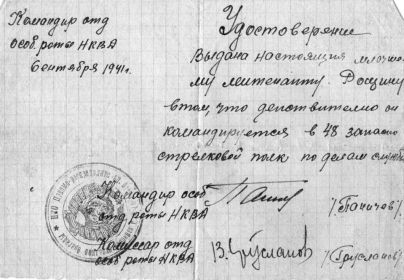 Командир отд
особ. роты НКВД
6 сентября 1941г.
Удостоверение
Выдана настоящия младше
му лейтенанту Рощину
в том, что действительно он
командируется в 48 запасн
стрелковой полк по делам службы
Командир особ
отд роты НКВД
/Паничов/
Комиссар отд
особ роты НКВД
В. Грусланов
/Грусланов/